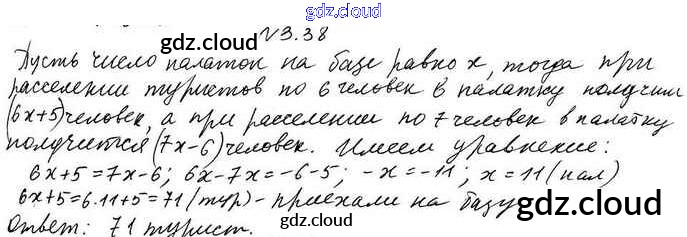 gdz.cloud
№3.38
gdz.cloud gdz.cloud
Пусть число палаток на базе равно x, тогда при
расселении туристов по 6 человек в палатку получим
(6x+5) человек, а при расселении по 7 человек в палатку
получится (7x-6) человек. Имеем уравнение:
6x+5=7x-6; 6x-7x=-6-5; -x=-11; x=11 (пал)
6x+5=6.11+5=71 (тур) - приехали на базу
gdz.cloud
Ответ: 71 турист.
gdz.cloud